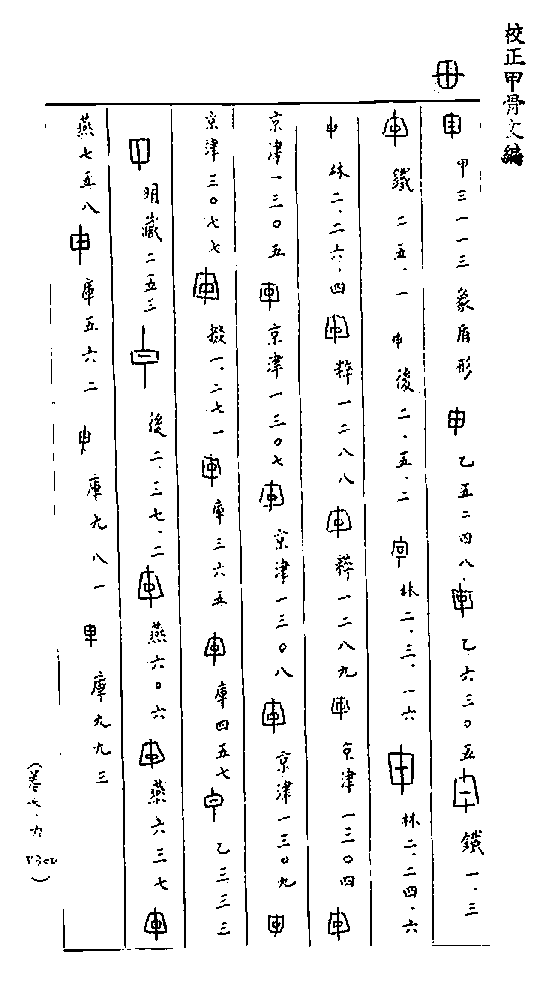 校正甲骨文編
甲三一一三 象盾形 乙五二四八 乙六三〇五 鐵一.三
鐵二五.一 後二.五.二 林二.三.一六 林二.二四.六
林二.二六.四 粹一二八八 粹一二八九 京津一三〇四
京津一三〇五 京津一三〇七 京津一三〇八 京津一三〇九
京津三〇七七 掇一.二七一 庫三六五 庫四五七 乙三三三
明藏二五三 後二.三七.二 燕六〇六 燕六三七
燕七五八 庫五六二 庫九八一 庫九九三